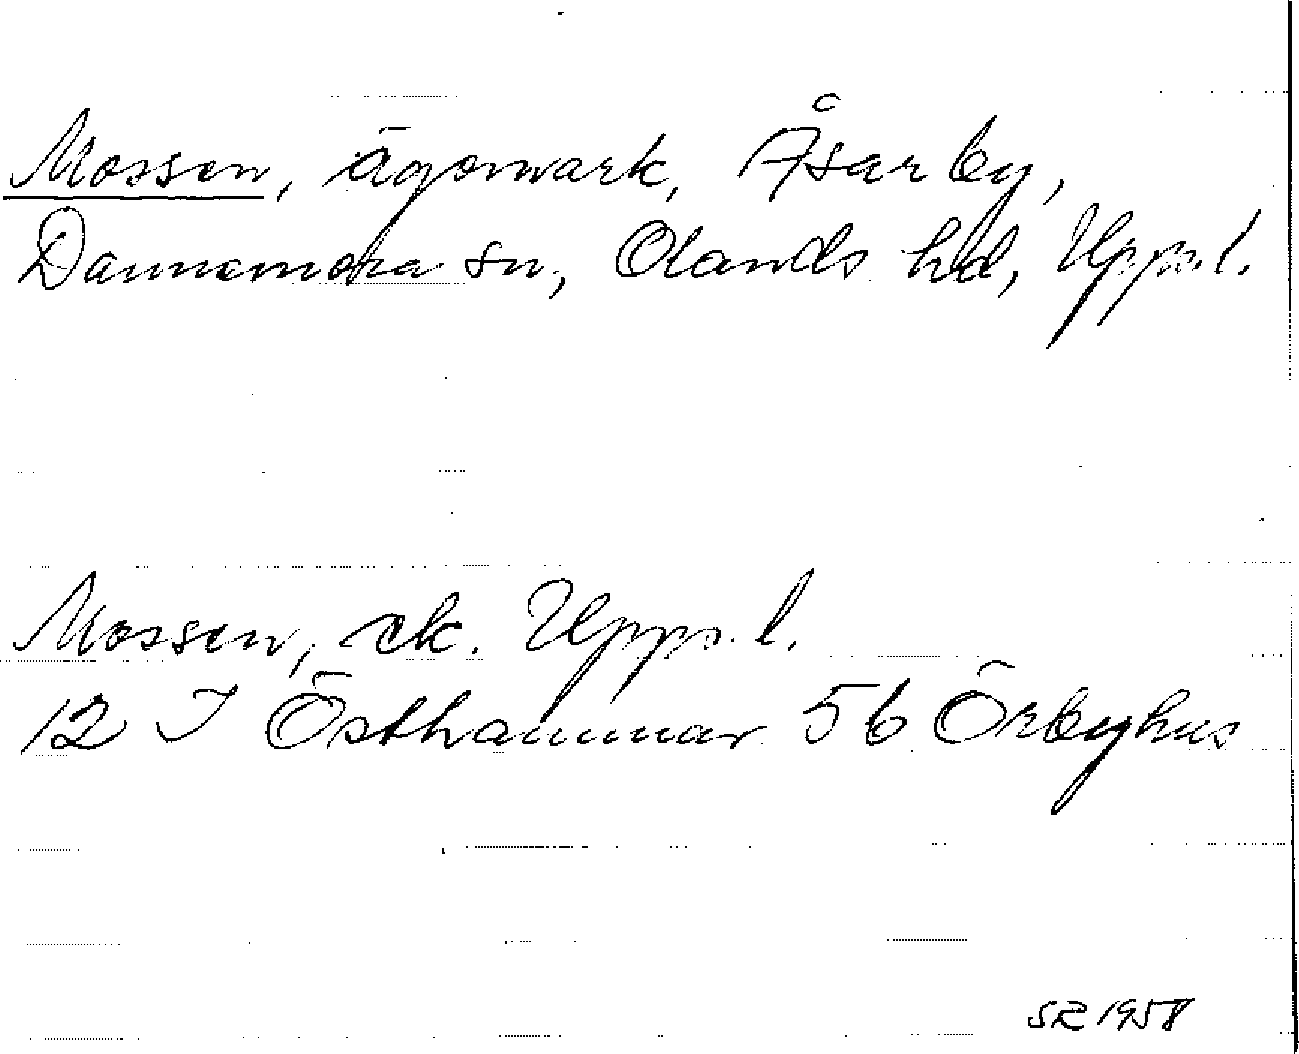 Mossen, ägomark, Åsarby,
Dannemora sn, Olands hd, Uppl.
Mossen, ek. Uppl.
12 I Östhammar 56 Örbyhus
SR 1958